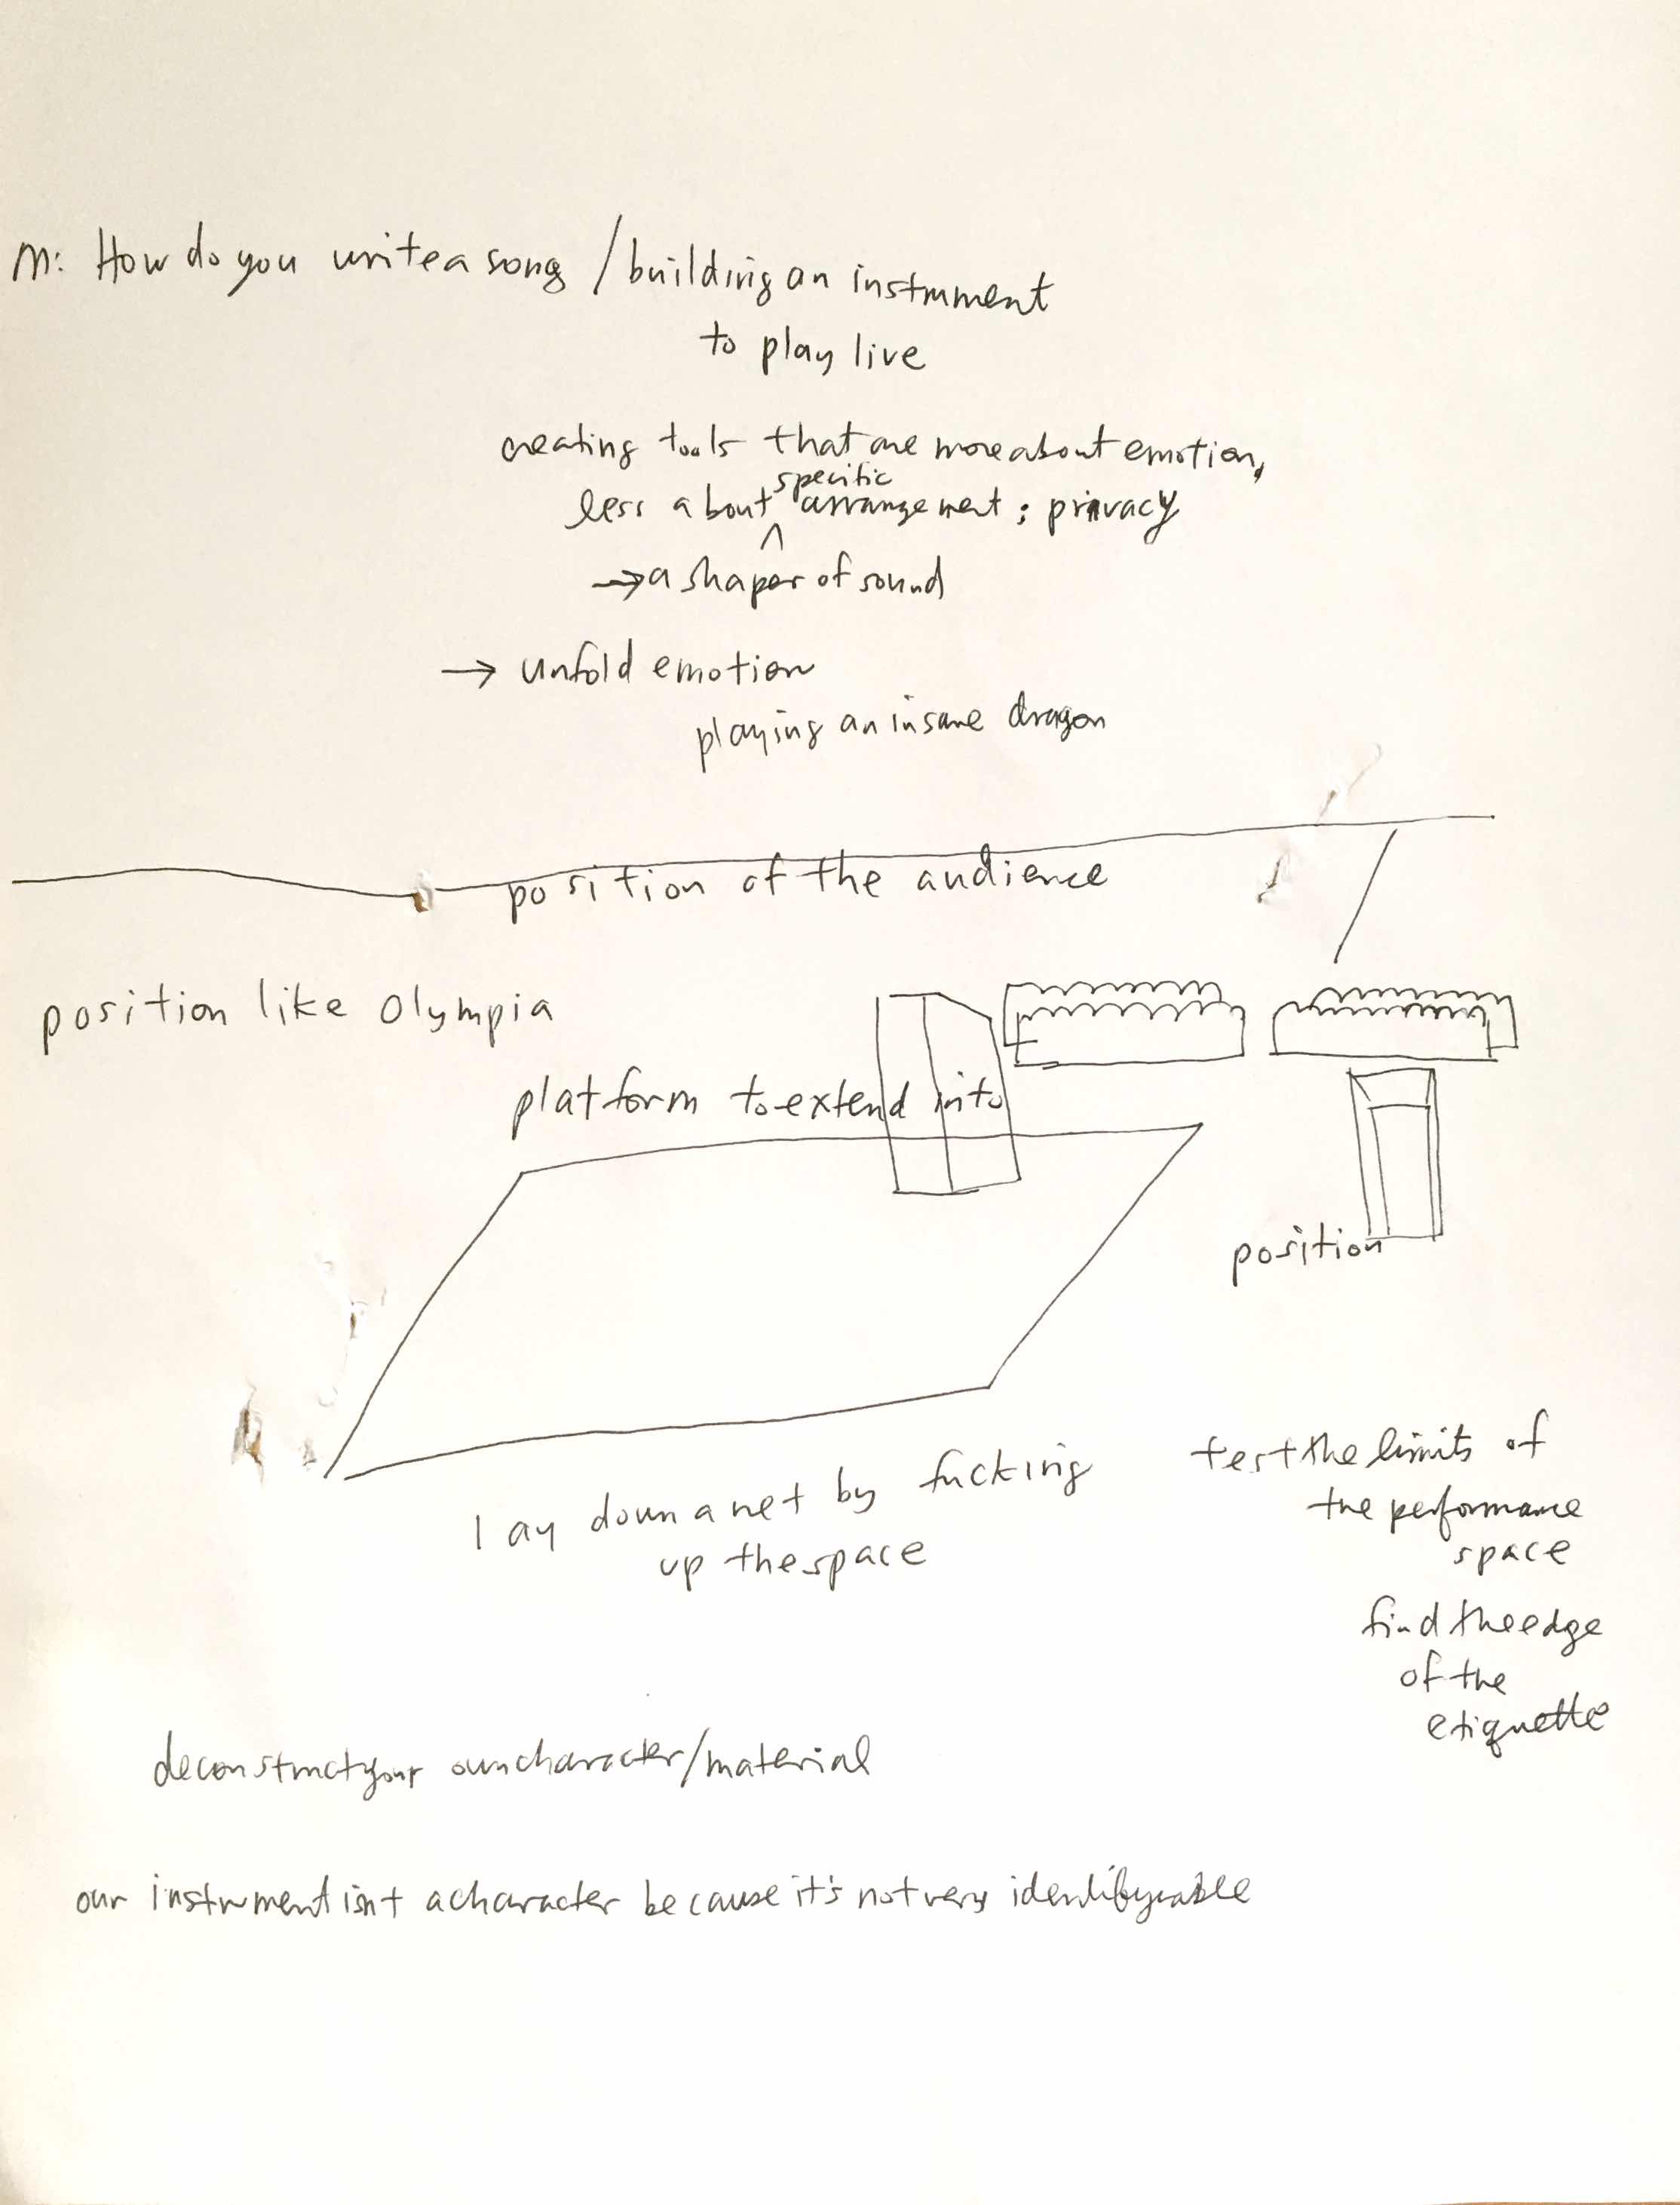 M: How do you write a song / building an instrument
to play live
creating tools that are more about emotion,
less about specific arrangement; privacy
→ a shaper of sound
→ unfold emotion
playing an insane dragon
position of the audience
position like Olympia
platform to extend into
position
lay down a net by fucking
up the space
test the limits of
the performance
space
find the edge
of the
etiquette
deconstruct your own character/material
our instrument isn't a character because it's not very identifyable